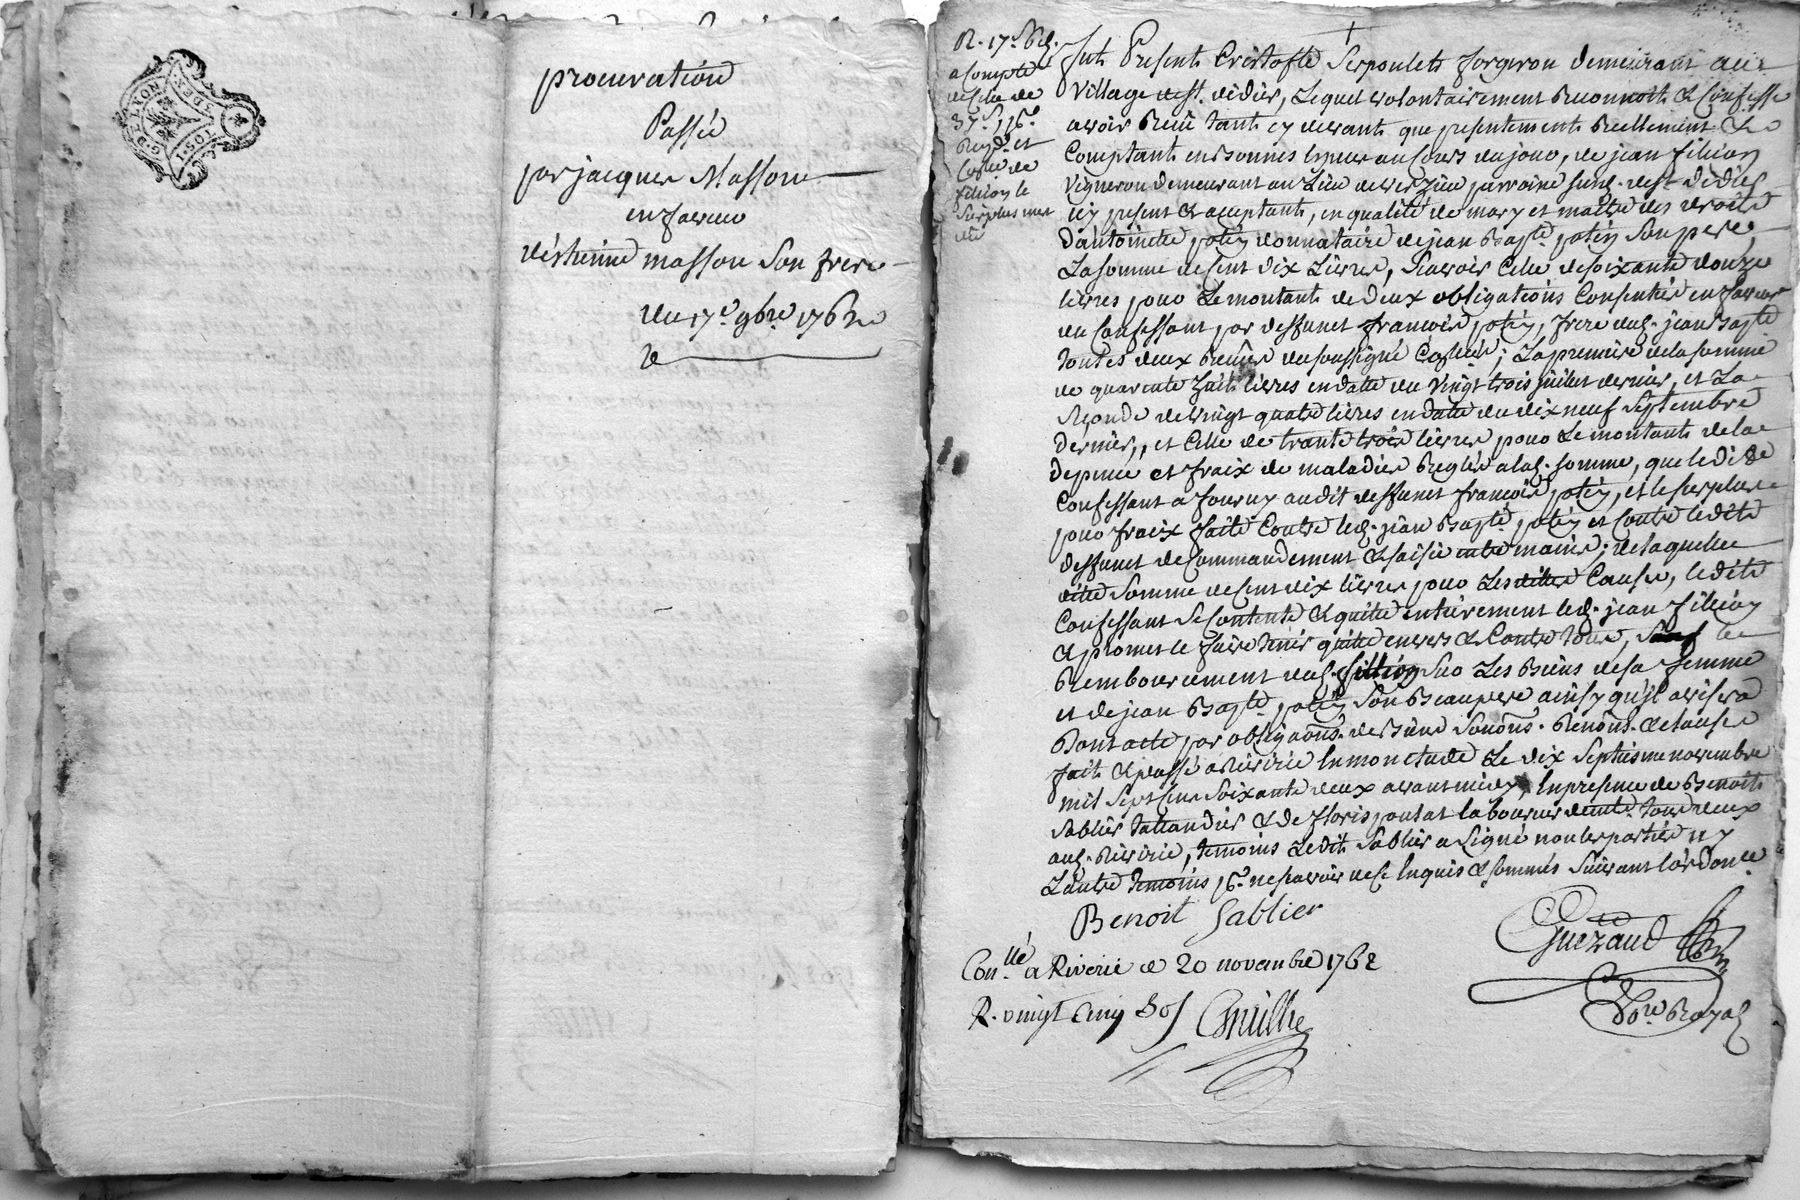 procuration
Passée
par jacques Masson
en faveur
d'éstienne masson son frere
du 17e 9bre 1762
R. 17e 9bre
a compte
de celle de
Reçu et
Copie de
fillion le
Surplus
dû
Fut Présent Cristofle Serpoulet forgeron demeurant au
Village de st. didier, Lequel volontairement Reconnoît & Confesse
avoir Reçu tant cy devant que presentement Reellement &
Comptant en bonnes Especes au Cours du jour, de jean fillion
Vigneron demeurant au Lieu de paroisse dud. st didier
icy present & acceptant, en qualité de mary et maître des droits
d'antoinette potéy donnataire de jean Bapte potéy son pere,
La somme de Cent dix Livres, Scavoir Celle de soixante douze
livres pour Le montant de deux obligations Consenties en faveur
du Confessant par deffunct francois potéy, frere dud. jean Bapte
toutes deux Reçues du soussigné ; La premiere de la somme
de quarente huit livres en datte du Vingt trois juillet dernier, et La
Seconde de vingt quatre livres en datte du dix neuf Septembre
dernier, et Celle de trante trois livres pour Le montant de la
depence et fraix de maladie Reglée a lad. somme, que ledit
Confessant a fourny audit deffunct francois potéy, et le surplus
pour fraix faits Contre led. jean Bapte potéy et Contre ledit
deffunct de Commandement & saisie entre mains ; de laquelle
ditte Somme de Cent dix livres pour Les dittes Causes, ledit
Confessant Se Contente & quitte entierement led. jean fillion
& promet le faire tenir quitte envers & Contre tous, Sauf le
Rembourcement dud. fillion Sur Les Biens de sa femme
et de jean Bapte potéy Son Beaupere ainsy qu'il avisera
Dont acte par obligaons. de Biens Soumons. Renons. & clauses
fait & passé a Riverie En mon etude Le dix Septieme novembre
mil Sept Cent Soixante deux avant midy, En presence de Benoit
Sablier taillandier & de floris poulat laboureur demts. tous deux
aud. Riverie, temoins Ledit Sablier a Signé non les parties ny
L'autre temoins pr. ne scavoir de ce Enquis & sommés Suivant L'ordonce.
Benoit Sablier
Guerand
Nore. Royal
Conllé a Riverie ce 20 novembre 1762
R. vingt Cinq Sols